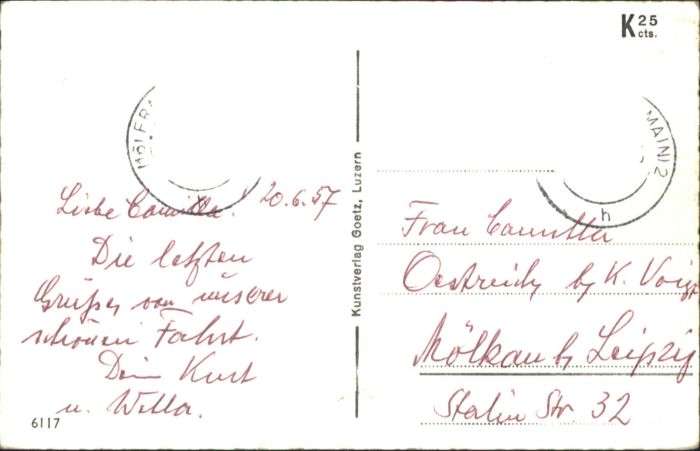 K 25 cts.
MÖLFRA
MAIN) 2
h
h
Liebe Camilla. 20.6.57
Die letzten
Grüße von unserer
schönen Fahrt.
Dein Kurt
u. Willa.
6117
Kunstverlag Goetz, Luzern
Frau Camilla
Oestreich by K. Voigt
Mölkau b. Leipzig
Stalin Str. 32